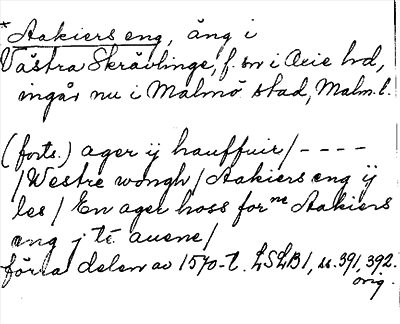 *Aakiers eng, äng i
Västra Skrävlinge, f. sn i Oxie hd,
ingår nu i Malmö stad, Malm. l.
(forts.) ager ij hauffuir/ - - - -
/Westre wongh/ Aakiers eng ij
les/ En ager hoss for^ne Aakiers
eng j td auene/
förra delen av 1570-t. LSLB 1, ss. 391, 392.
orig.